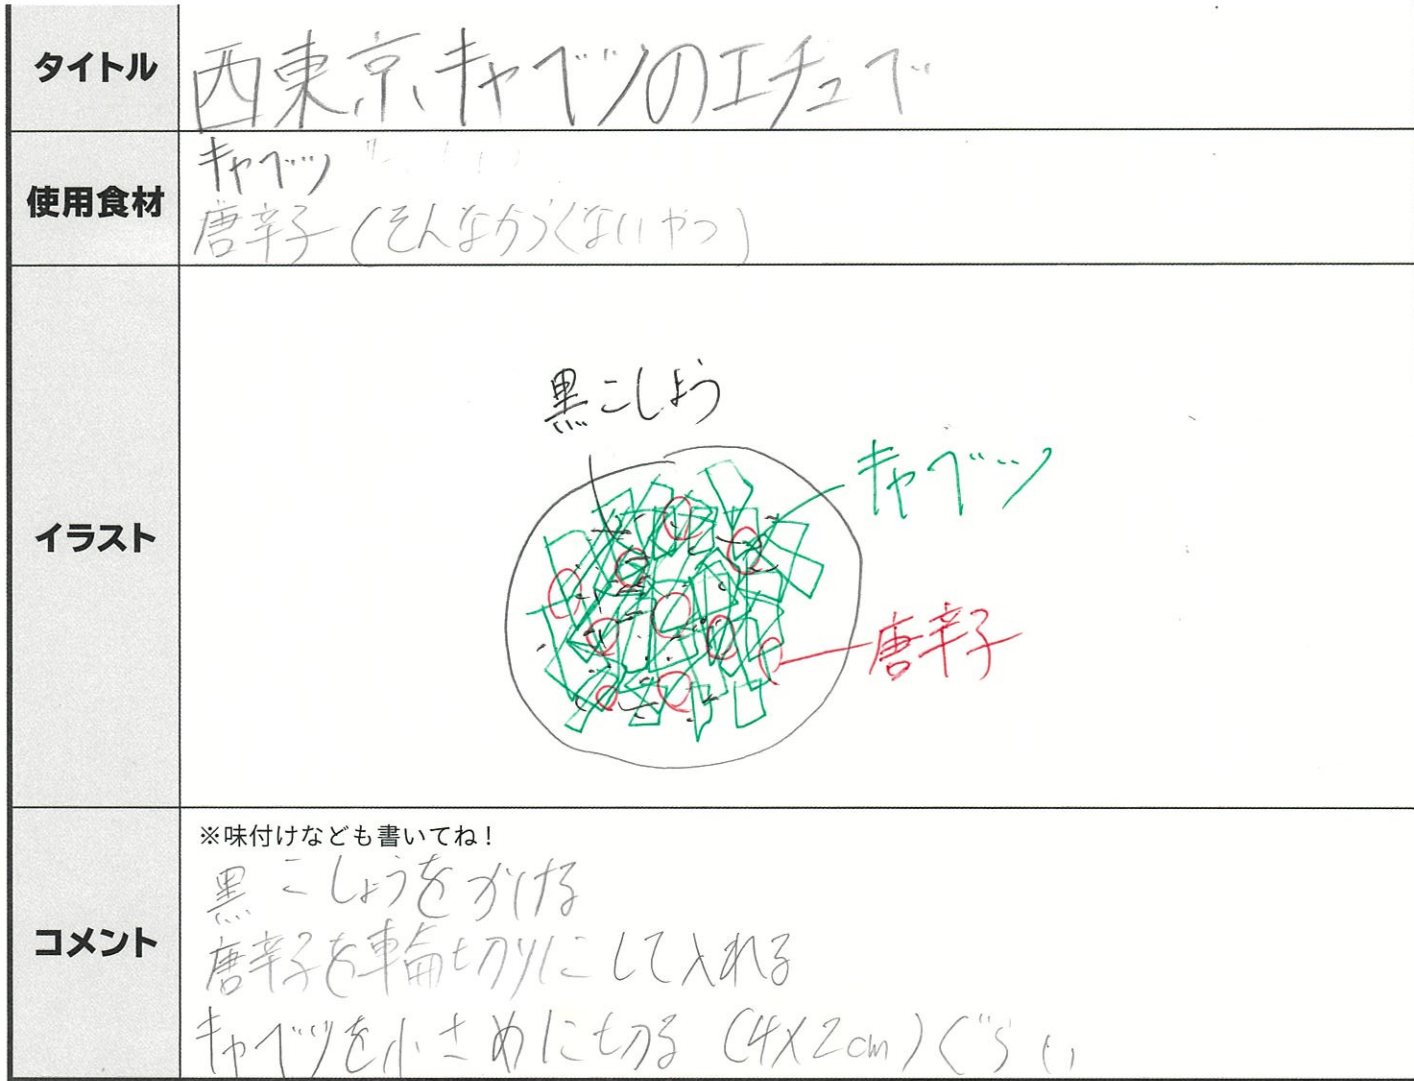 タイトル
西東京キャベツのエチュベ
使用食材
キャベツ
唐辛子(そんなからくないやつ)
イラスト
黒こしょう
キャベツ
唐辛子
コメント
※味付けなども書いてね!
黒こしょうをかける
唐辛子を輪切りにして入れる
キャベツを小さめに切る (4×2cm)ぐらい